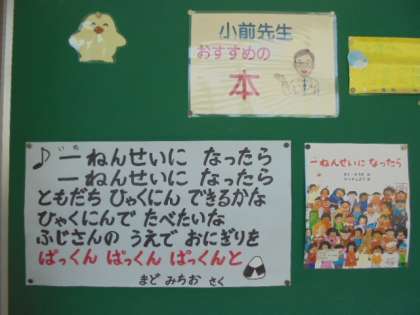 小前先生
おすすめの
本
♪一ねんせいに なったら
一ねんせいに なったら
ともだち ひゃくにん できるかな
ひゃくにんで たべたいな
ふじさんの うえで おにぎりを
ぱっくん ぱっくん ぱっくんと
まど みちお さく
一ねんせいに なったら